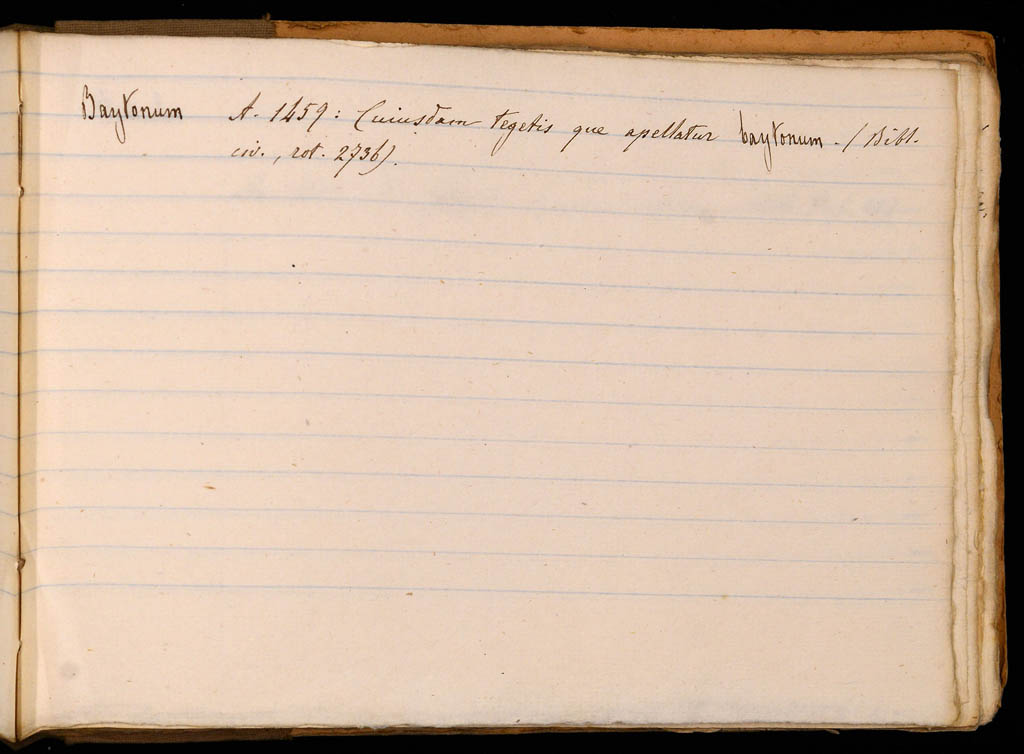 Baytonum A. 1459: Cuiusdam tegetis que apellatur baytonum. (Bibl.
civ., rot. 2736).